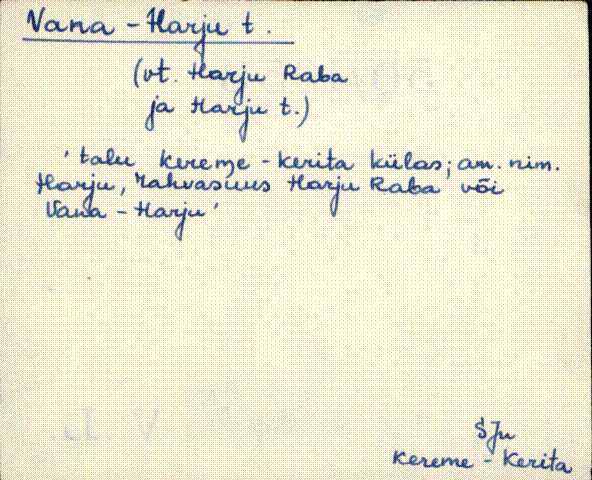 Vana-Harju t.
(vt. Harju Raba
ja Harju t.)
'talu Kereme-Kerita külas; am. nim.
Harju, rahvasuus Harju Raba või
Vana-Harju'
SJu
Kereme-Kerita